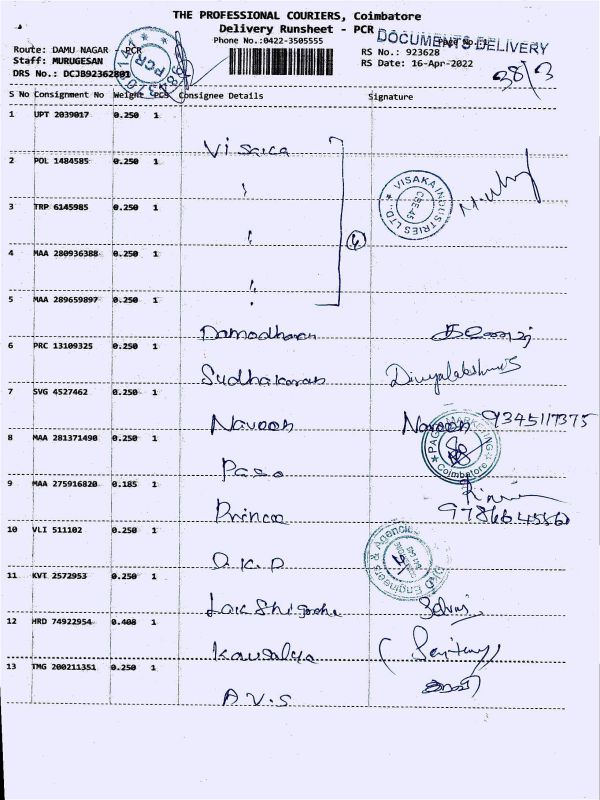 THE PROFESSIONAL COURIERS, Coimbatore
Delivery Runsheet - PCR
DOCUMENTS DELIVERY
Phone No.:0422-3505555
Route: DAMU NAGAR - PCR
Staff: MURUGESAN
DRS No.: DCJB92362801
RS No.: 923628
RS Date: 16-Apr-2022
38/3
S No Consignment No Weight PCS Consignee Details Signature
1 UPT 2039017 0.250 1 Visaka
2 POL 1484585 0.250 1
3 TRP 6145985 0.250 1
VISAKA INDUSTRIES LTD.
CBE-45
4 MAA 280936388 0.250 1
5 MAA 289659897 0.250 1 Damodharan
6 PRC 13109325 0.250 1 Sudhakaran Divyalakshmi
7 SVG 4527462 0.250 1 Naveen Naveen 9345117375
8 MAA 281371490 0.250 1
Coimbatore
9 MAA 275916820 0.185 1 Prince
10 VLI 511102 0.250 1 D.K.D
DKD Engineers & Agencies
11 KVT 2572953 0.250 1
12 HRD 74922954 0.408 1 Kausalya
13 TMG 200211351 0.250 1 A.V.S